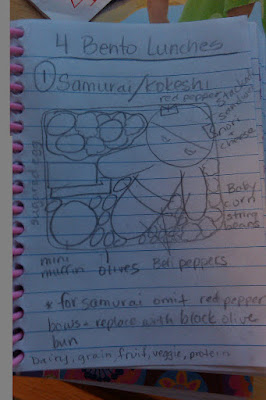 4 Bento Lunches
1 Samurai/Kokeshi
red pepper
nori +
cheese
sugared egg
Baby
corn
string
beans
mini
muffin
olives
Bell peppers
* for samurai omit red pepper
bows + replace with black olive
bun
Dairy, grain, fruit, veggie, protein